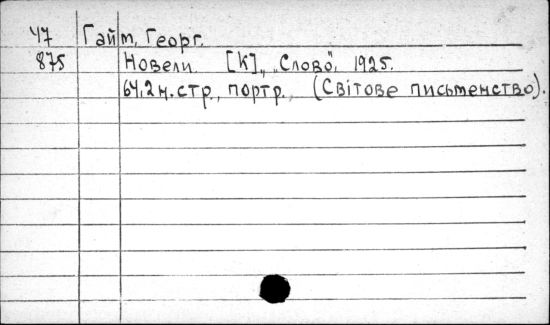 47 Гайм, Георг.
875 Новели. [К], „Слово", 1925.
64,2 н.стр., портр., (Світове письменство).